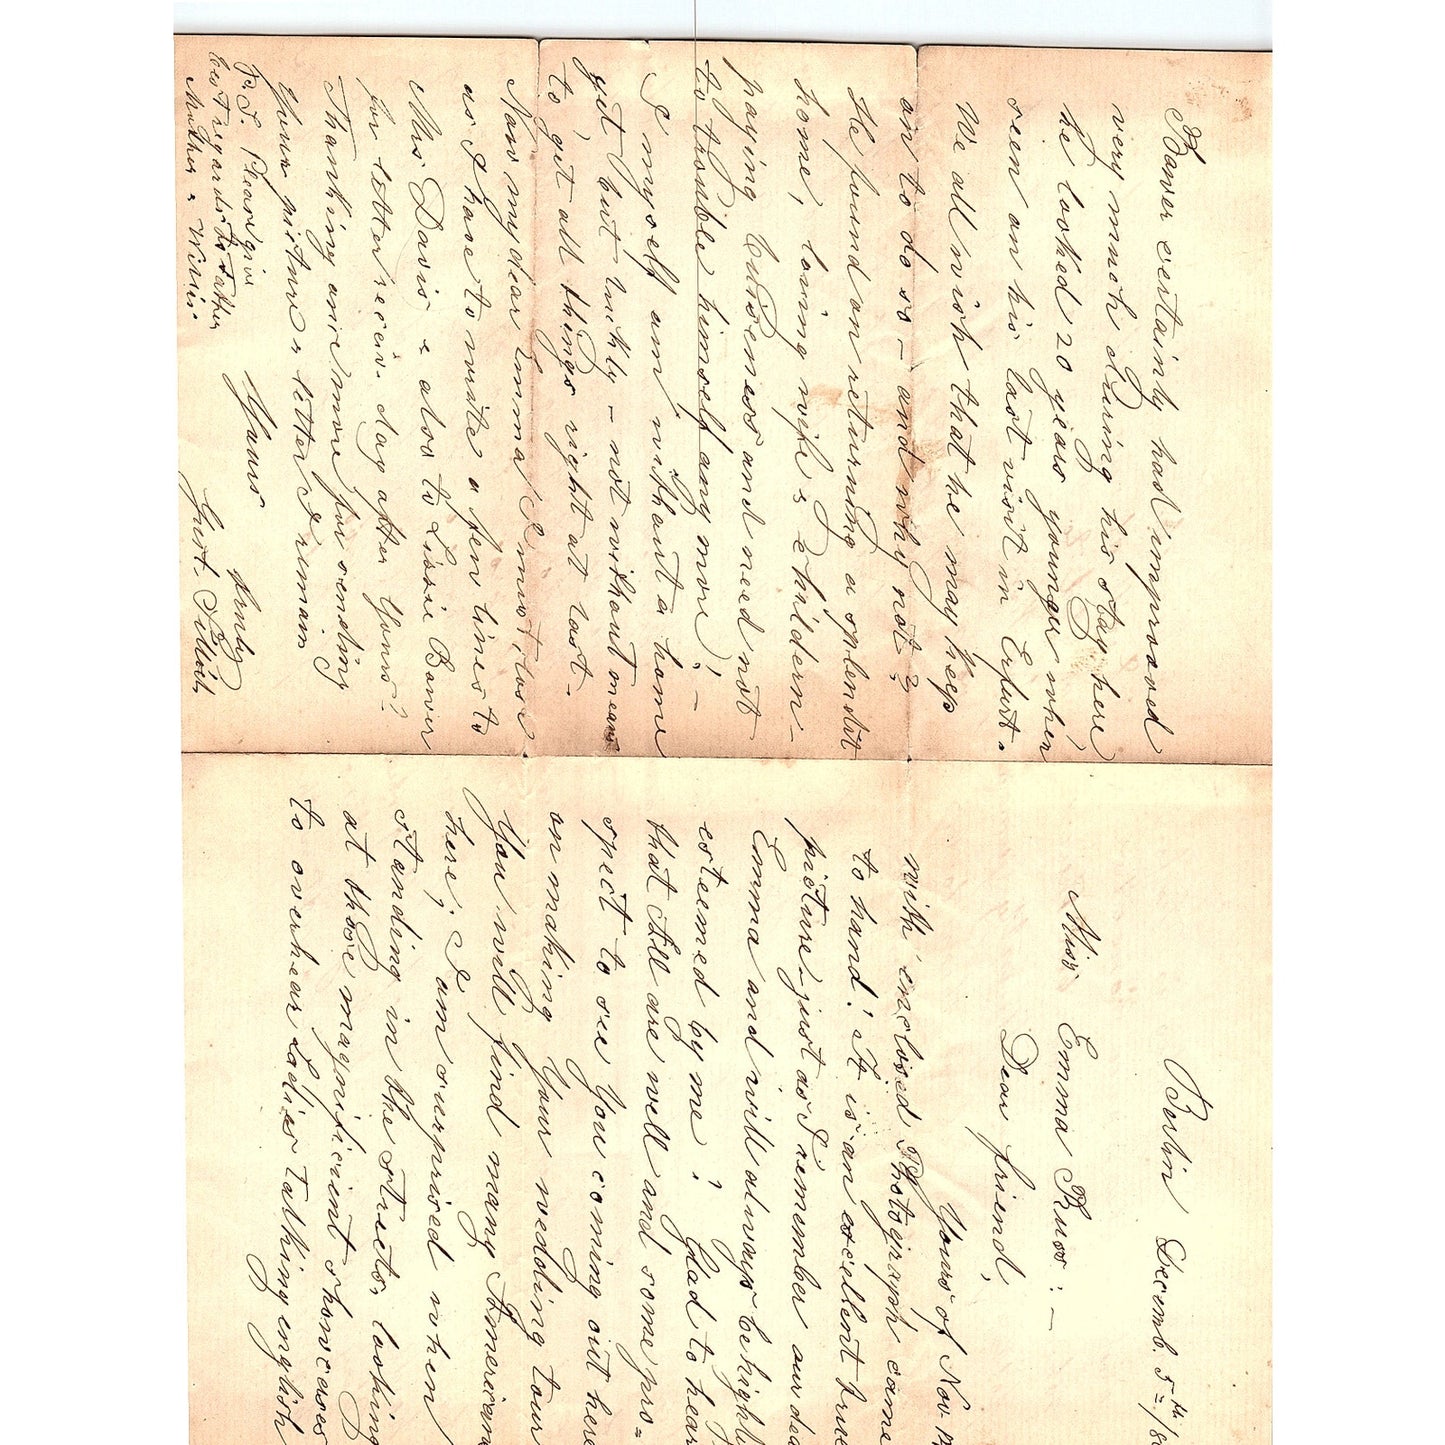 Berlin Decemb. 5th /8
Miss Emma Russ: —
Dear friend,
Yours of Nov
with inclosed Photograph came
to hand! It is an excellent true
picture just as I remember our dea
Emma and will always be highl
esteemed by me! Glad to hear
that All are well and some pro=
spect to see You coming out here
on making Your wedding tour
You will find many American
here; I am surprised when
standing in the streets, looking
at those magnificient showcases
to overhear Ladies talking english
Bower certainly had improved
very much during his stay here
he looked 20 years younger when
seen on his last visit in Erfurt.
We all wish that he may keep
on to do so — and why not?
He found on returning a splendit
home, loving wife & childern —
paying buiseness and need not
to trouble himself any more! —
I myself am without a home
yet but luckly — not without means
to git all things right at last.
Now my dear Emma I must close.
as I have to write a few lines to
Mrs Davis & also to Lissie Bower
for letter receiv. day after Yours?
Thanking once more for sending
Your picture & letter I remain
Yours truly
Gust. Tillich
P.S. Please give
best regards to father
Mother & Willie: